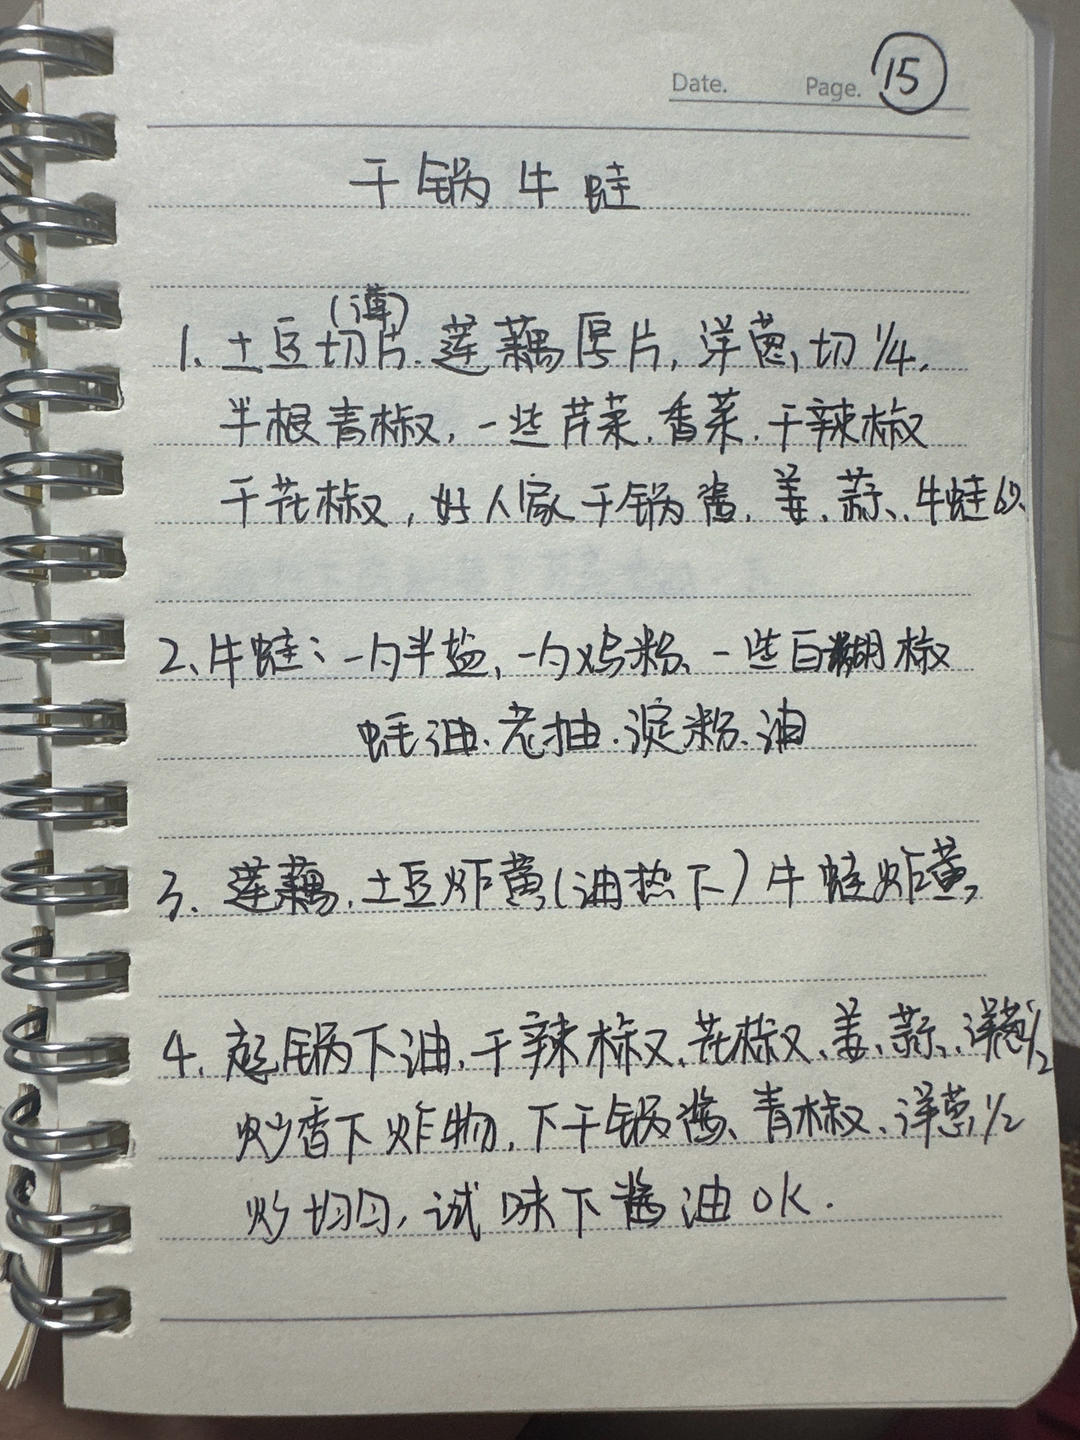 Date. Page. 15
干锅牛蛙
(薄)
1. 土豆切片. 莲藕厚片, 洋葱, 切1/4.
半根青椒, 一些芹菜. 香菜. 干辣椒
干花椒, 好人家干锅酱. 姜、蒜、牛蛙6只.
2. 牛蛙: 一勺半盐, 一勺鸡粉、一些白胡椒
蚝油、老抽. 淀粉、油
3. 莲藕. 土豆炸黄(油热下) 牛蛙炸黄,
4. 起锅下油. 干辣椒、花椒、姜、蒜、洋葱1/2
炒香下炸物, 下干锅酱、青椒、洋葱1/2
炒均匀, 试味下酱油OK.